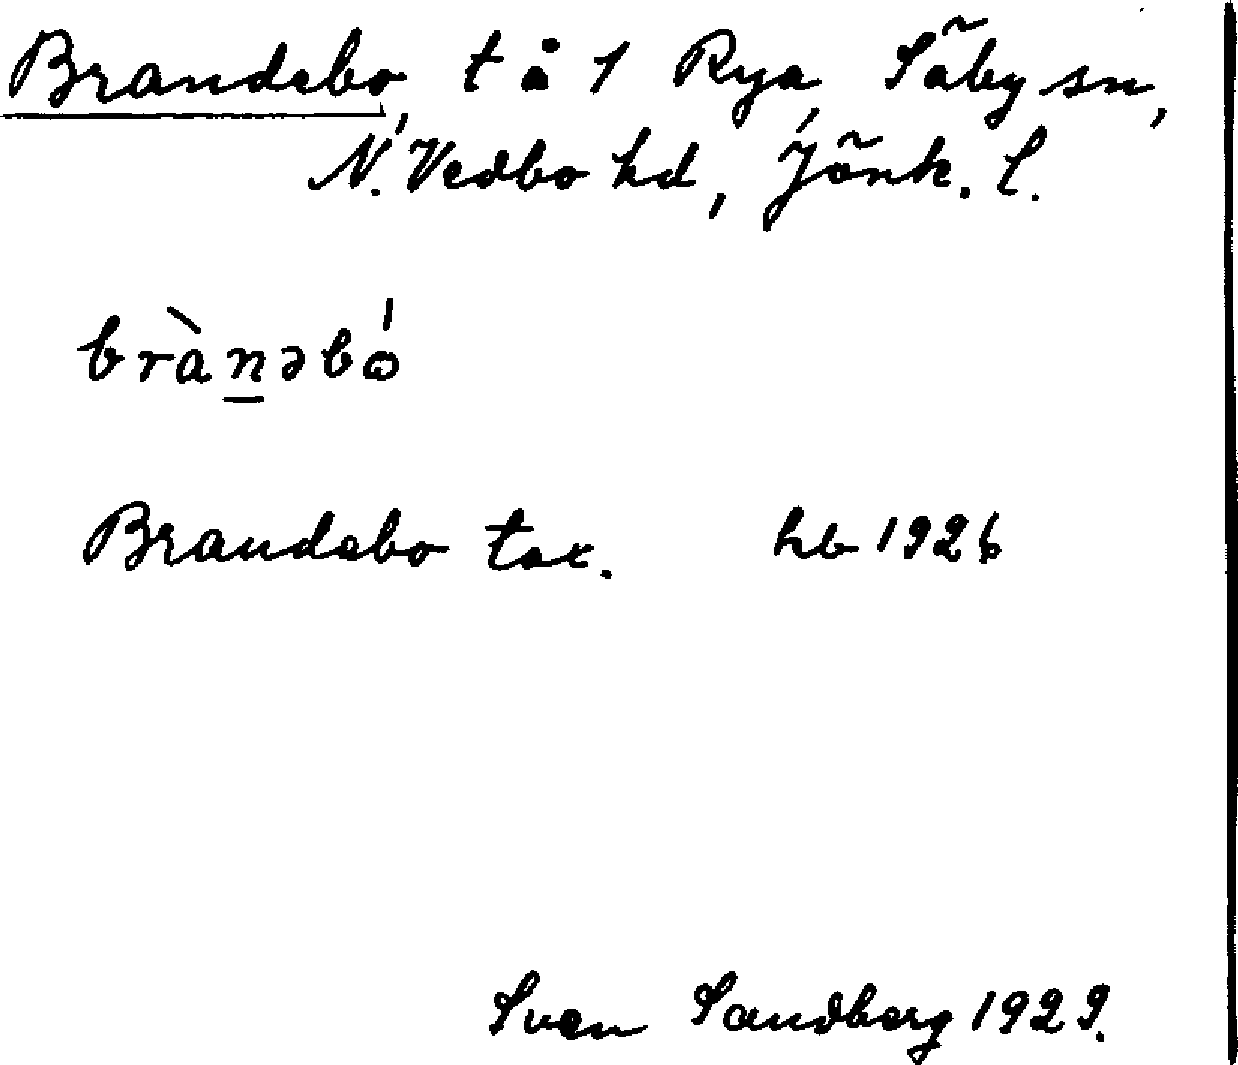 Brandebo, t å 1 Rya, Säby sn,
N. Vedbo hd, Jönk. l.
brànəbó
Brandebo tax. hb 1926
Sven Sandberg 1929.